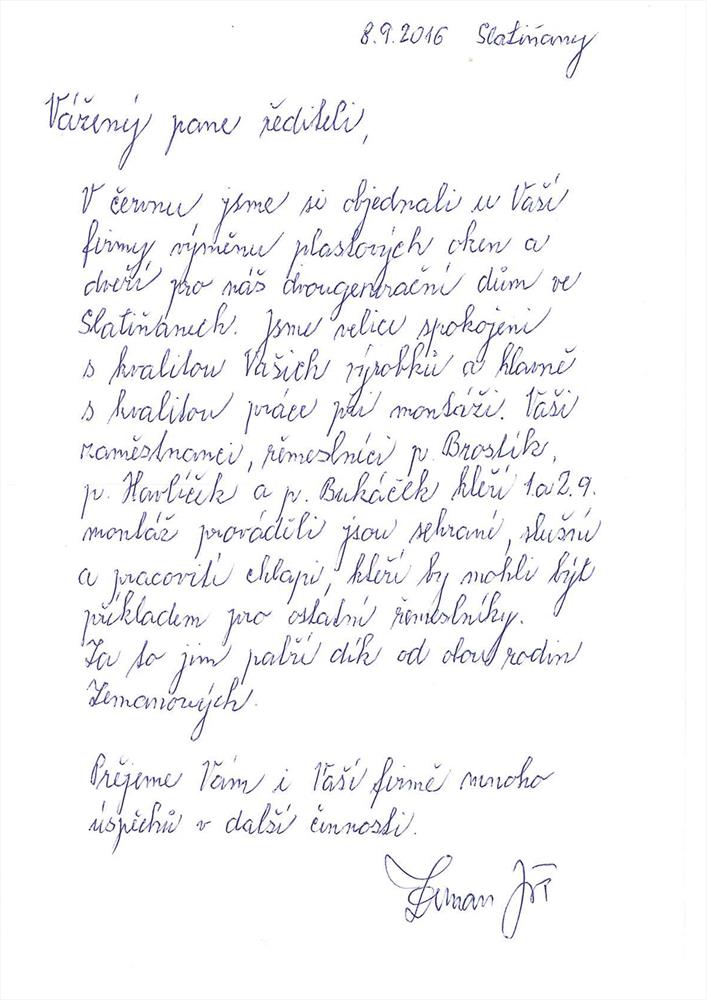 8.9.2016 Slatiňany
Vážený pane řediteli,
V červnu jsme si objednali u Vaší
firmy výměnu plastových oken a
dveří pro náš dvougenerační dům ve
Slatiňanech. Jsme velice spokojeni
s kvalitou Vašich výrobků a hlavně
s kvalitou práce při montáži. Vaši
zaměstnanci, řemeslníci p. Brostík,
p. Havlíček a p. Bukáček kteří 1. a 2.9.
montáž prováděli jsou sehraní, slušní
a pracovití chlapi, kteří by mohli být
příkladem pro ostatní řemeslníky.
Za to jim patří dík od obou rodin
Zemanových.
Přejeme Vám i Vaší firmě mnoho
úspěchů v další činnosti.
Zeman Jiří